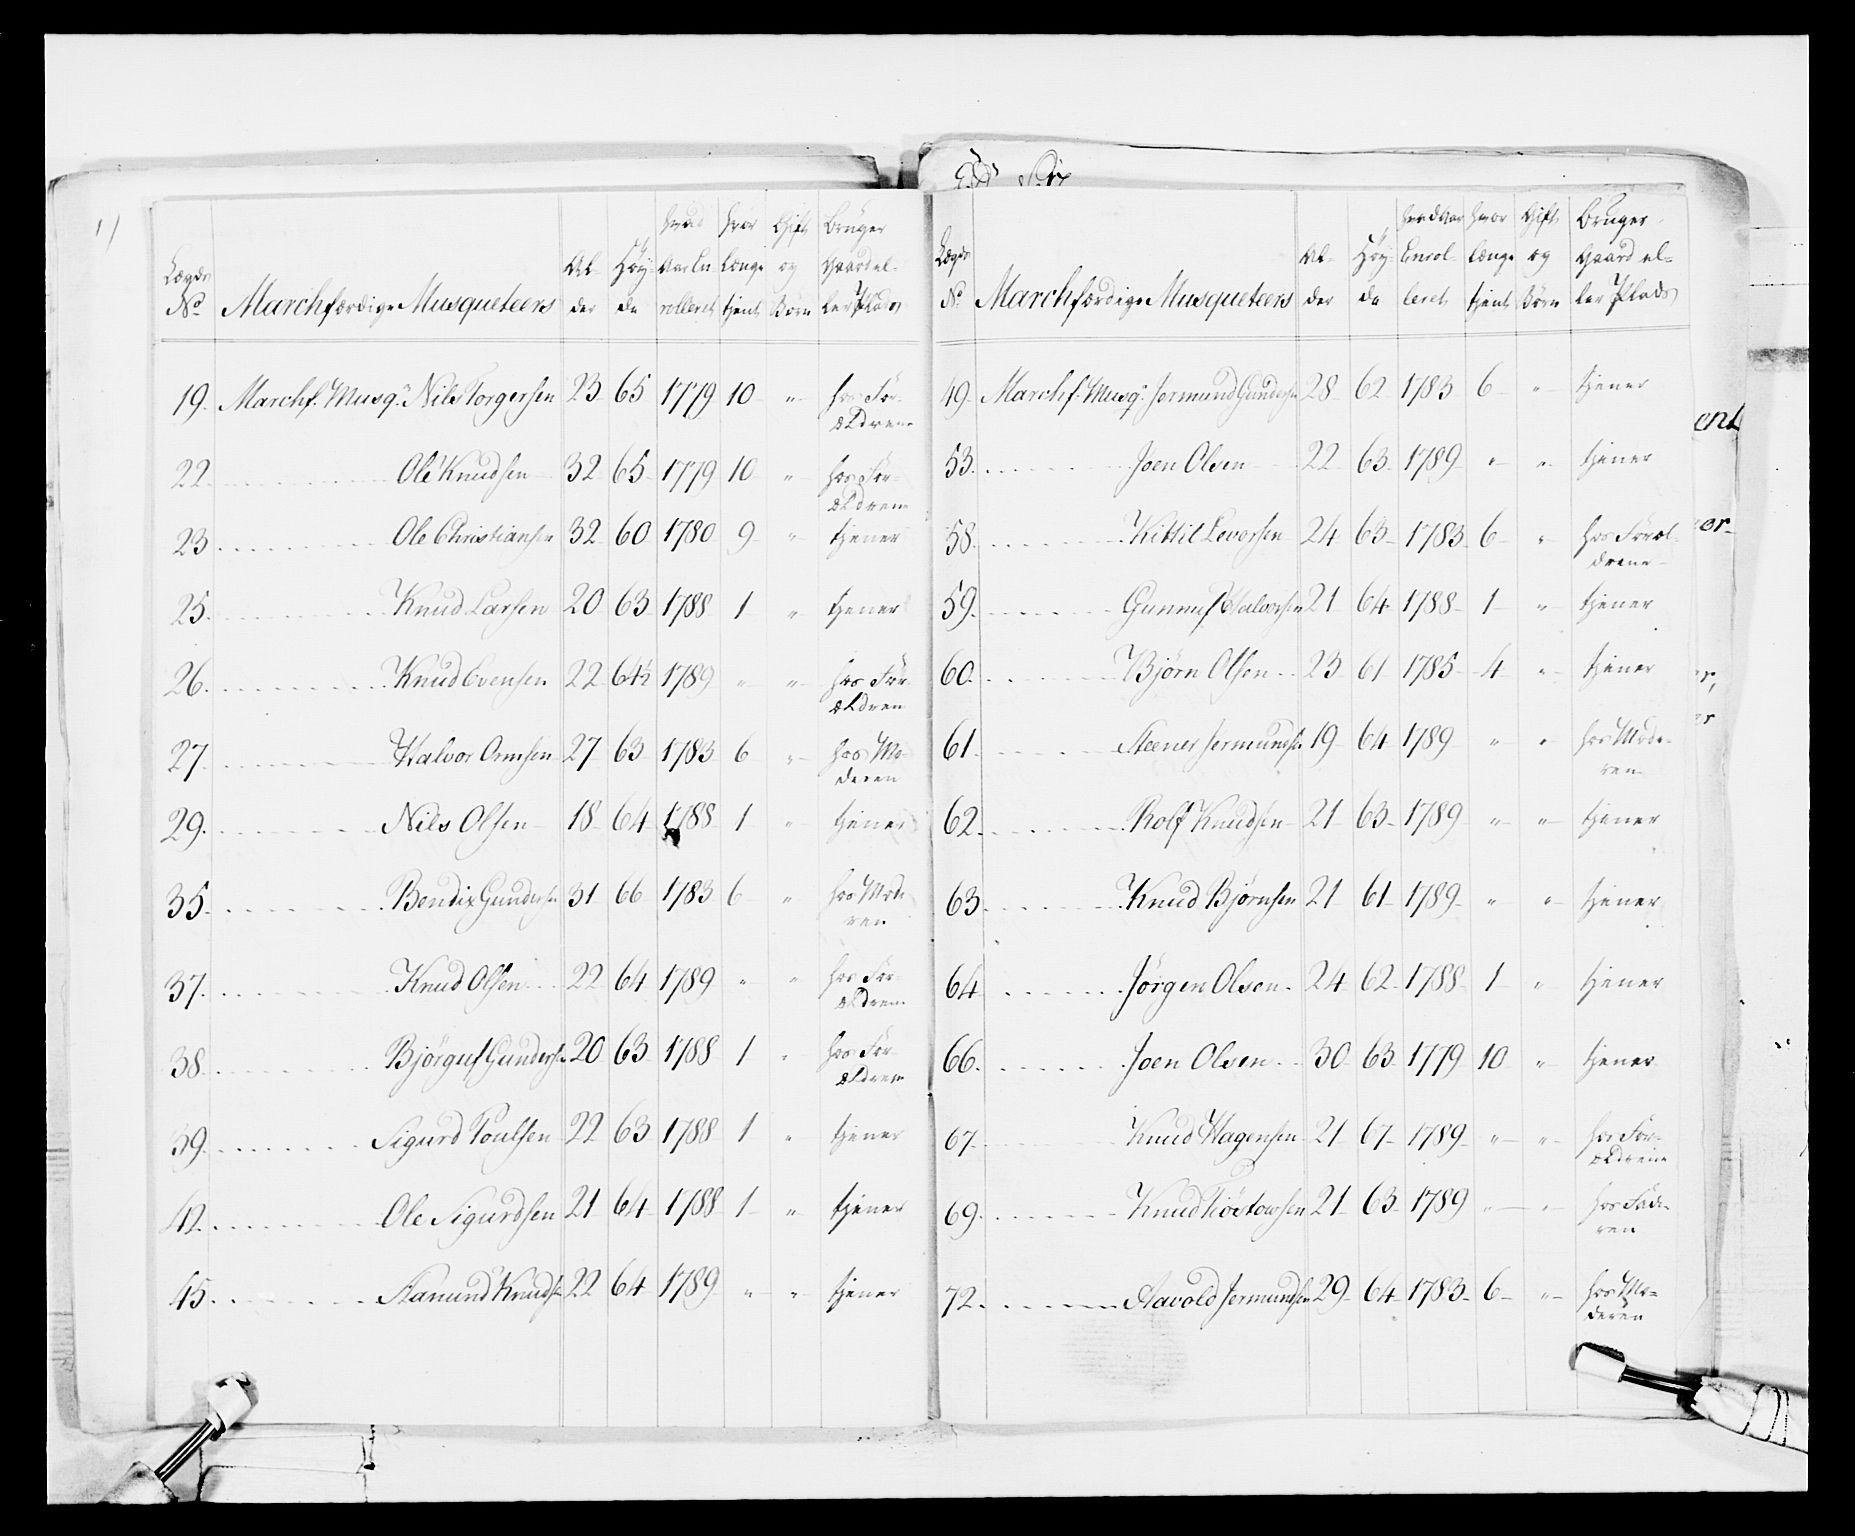 Lægds No. Marchfærdige Musqueteers Al- der Høy- de hvad Aar En- rolleret hvor Længe tjent Gift og Børn Bruger Gaard el- ler Plads
19. Marchf. Musq. Nils Torgersen 23 65 1779 10 " hos For-
ældrene
22. Ole Knudsen 32 65 1779 10 " hos For-
ældrene
23 Ole Christiansen 32 60 1780 9 " tjener
25. Knud Larsen 20 63 1788 1 " tjener
26. Knud Evensen 22 64½ 1789 " " hos For-
ældren
27. Halvor Ormsen 27 63 1783 6 " hos Mo-
deren
29. Nils Olsen 18 64 1788 1 " tjener
35. Bendix Gundersen 31 66 1783 6 " hos Mode
ren
37. Knud Olsen 22 64 1789 " " hos For-
ældren
38. Bjørguf Gundersen 20 63 1788 1 " hos For-
ældren
39. Sigurd Poulsen 22 63 1788 1 " tjener
42. Ole Sigurdsen 21 64 1788 1 " tjener
45. Aamund Knuds 22 64 1789 " " tjener
Lægds No. Marchfærdige Musqueteers Al- der Høy- de hvad Aar Enrol- leret hvor længe tjent Gift og Børn Bruger Gaard el- ler Plads
49. Marchf. Musq. Jermund Gunders 28 62 1783 6 " tjener
53. Joen Olsen 22 63 1789 " " tjener
58. Kittil Levorsen 24 63 1783 6 " hos Foræl-
drene
59. Gunnuf Halvorsen 21 64 1788 1 " tjener
60. Bjørn Olsen 23 61 1785 4 " tjener
61. Steener Jermundsn 19 64 1789 " " hos Mode-
ren
62. Rolf Knudsen 21 63 1789 " " tjener
63. Knud Bjørnsen 21 61 1789 " " tjener
64 Jørgen Olsen 24 62 1788 1 " tjener
66. Joen Olsen 30 63 1779 10 " tjener
67. Knud Hagensen 21 67 1789 " " hos For-
ældrene
69. Knud Tiøstowsen 21 63 1789 " " hos Fade-
ren
72. Aavold Jermundsen 29 64 1783 6 " hos Mo-
deren